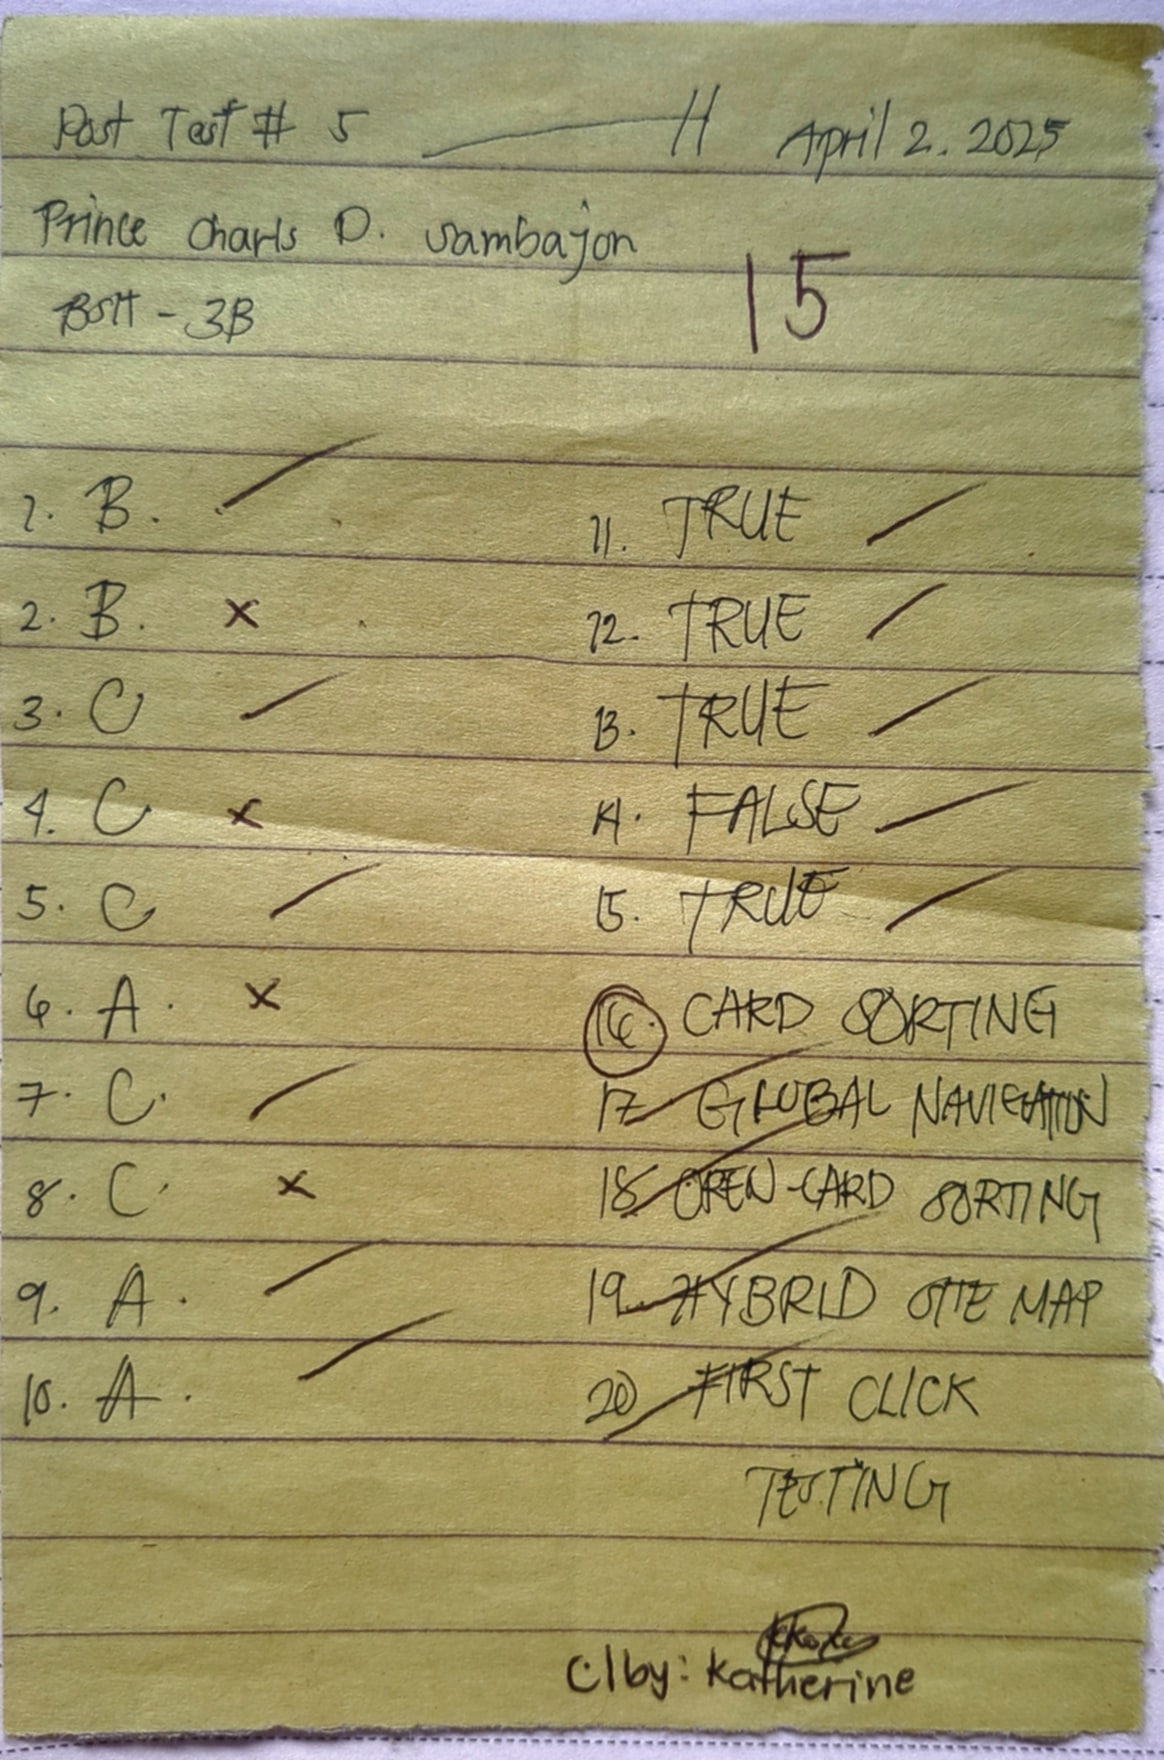 Post Test # 5 H April 2. 2025
Prince Charls D. Sambajon
BSIT - 3B
15
1. B.
2. B.
3. C
4. C
5. C
6. A.
7. C.
8. C.
9. A.
10. A.
11. TRUE
12. TRUE
13. TRUE
14. FALSE
15. TRUE
16. CARD SORTING
17. GLOBAL NAVIGATION
18. OPEN-CARD SORTING
19. HYBRID SITE MAP
20 FIRST CLICK
TESTING
C/by: Katherine